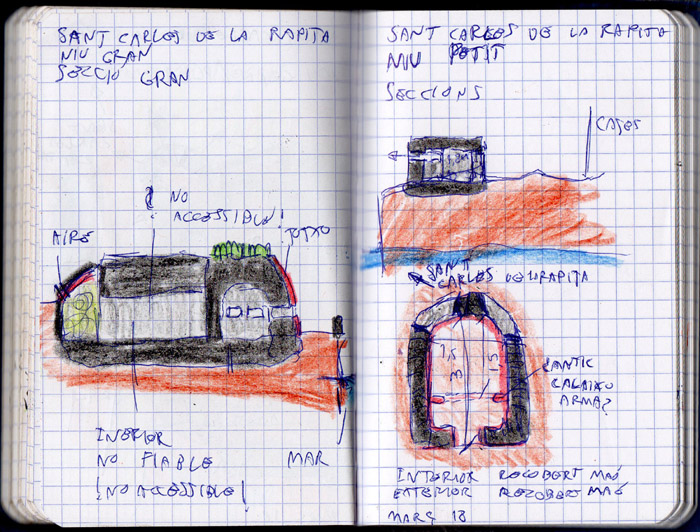 SANT CARLES DE LA RAPITA
NIU GRAN
SECCIO GRAN
NO
ACCESSIBLE!
AIRE
TOTXO
INTERIOR
NO FIABLE
MAR
¡NO ACCESSIBLE!
SANT CARLES DE LA RAPITA
NIU PETIT
SECCIONS
CASES
SANT
CARLES DE LA RAPITA
1,5
3
1,5
ANTIC
CALAIXO
ARMA?
INTERIOR RECOBERT MAÓ
EXTERIOR RECOBERT MAÓ
MARÇ 18